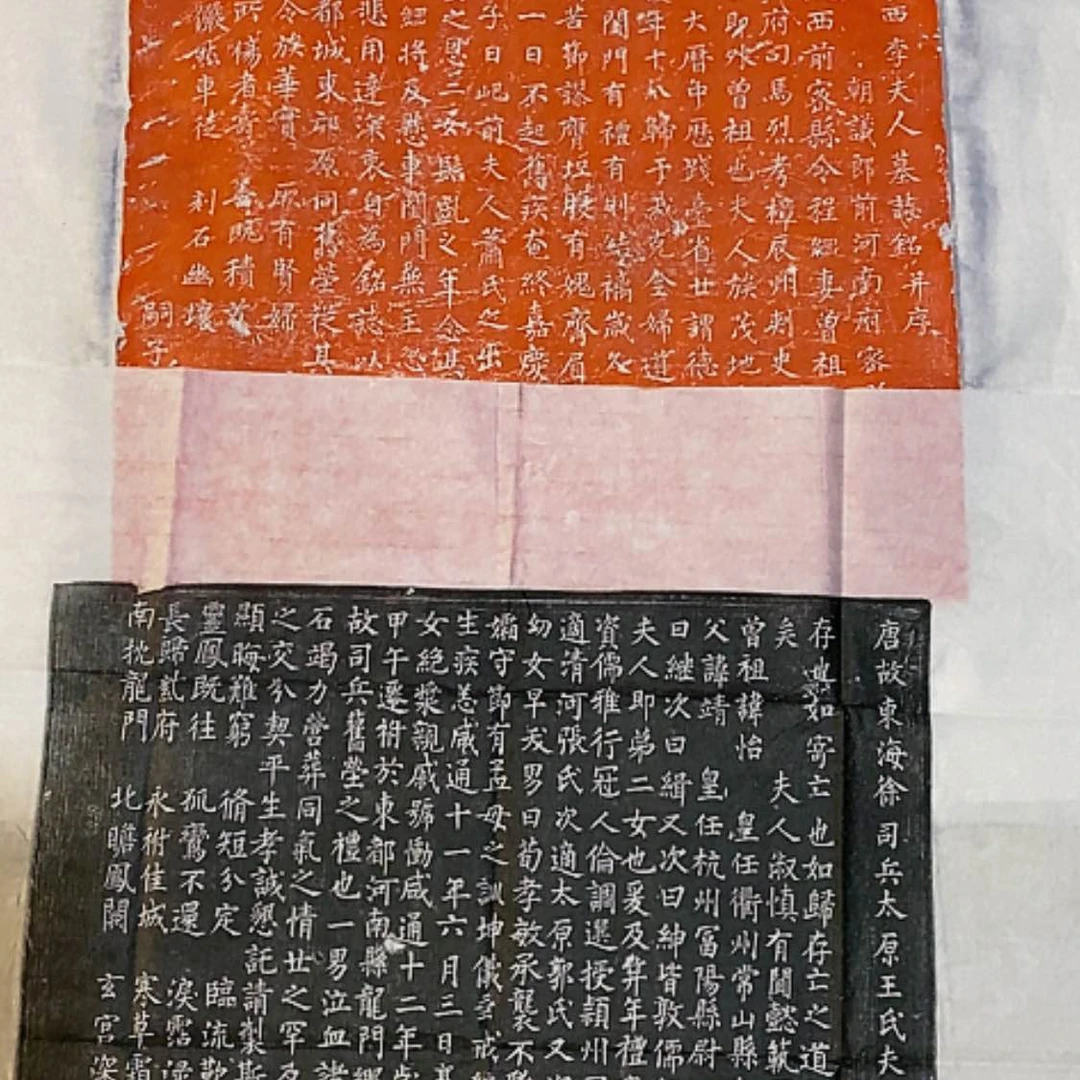 西李夫人墓誌銘并序
朝議郎前河南府密
西前密縣令程 妻曾祖
府司馬烈考樟辰州刺史
即外曾祖也夫人族茂地
大曆中歷踐臺省世謂德
年十八歸于我克全婦道
閨門有禮有則結褵歲久
苦節謬膺垢服有媿齊眉
一日不起舊疾奄終嘉慶
子曰屺前夫人蕭氏之出
之恩二女 齓之年念其
細將及慰車閨門無主恐
悲用達深哀自為銘誌以
都城東 原同舊塋從其
令族華實 灰有賢婦
所惕者壽 善既積
儼然車徒 刻石幽壤
嗣子
唐故東海徐司兵太原王氏夫
存歟如寄亡也如歸存亡之道
矣 夫人淑慎有聞懿範
曾祖諱怡 皇任衢州常山縣
父諱靖 皇任杭州富陽縣尉
曰继次曰緝又次曰紳皆敦儒
夫人即弟二女也爰及笄年禮
資儒雅行冠人倫調選授潁州
適清河張氏次適太原郭氏又
幼女早夭男曰荀孝敏承襲不
孀守節有孟母之訓坤儀
生疾恙咸通十一年六月三日
女絕漿親戚號慟咸通十二年
甲午遷祔於東都河南縣龍門鄉
故司兵舊塋之禮也一男泣血諸
石竭力營葬同氣之情世之罕及
之交分契平生孝誠懇託請製斯
顯晦難窮 脩短分定 臨流歎
靈鳳既往 孤鸞不還 淚霑
長歸貳府 永祔佳城 寒草霜
南抗龍門 北瞻鳳闕 玄宮深